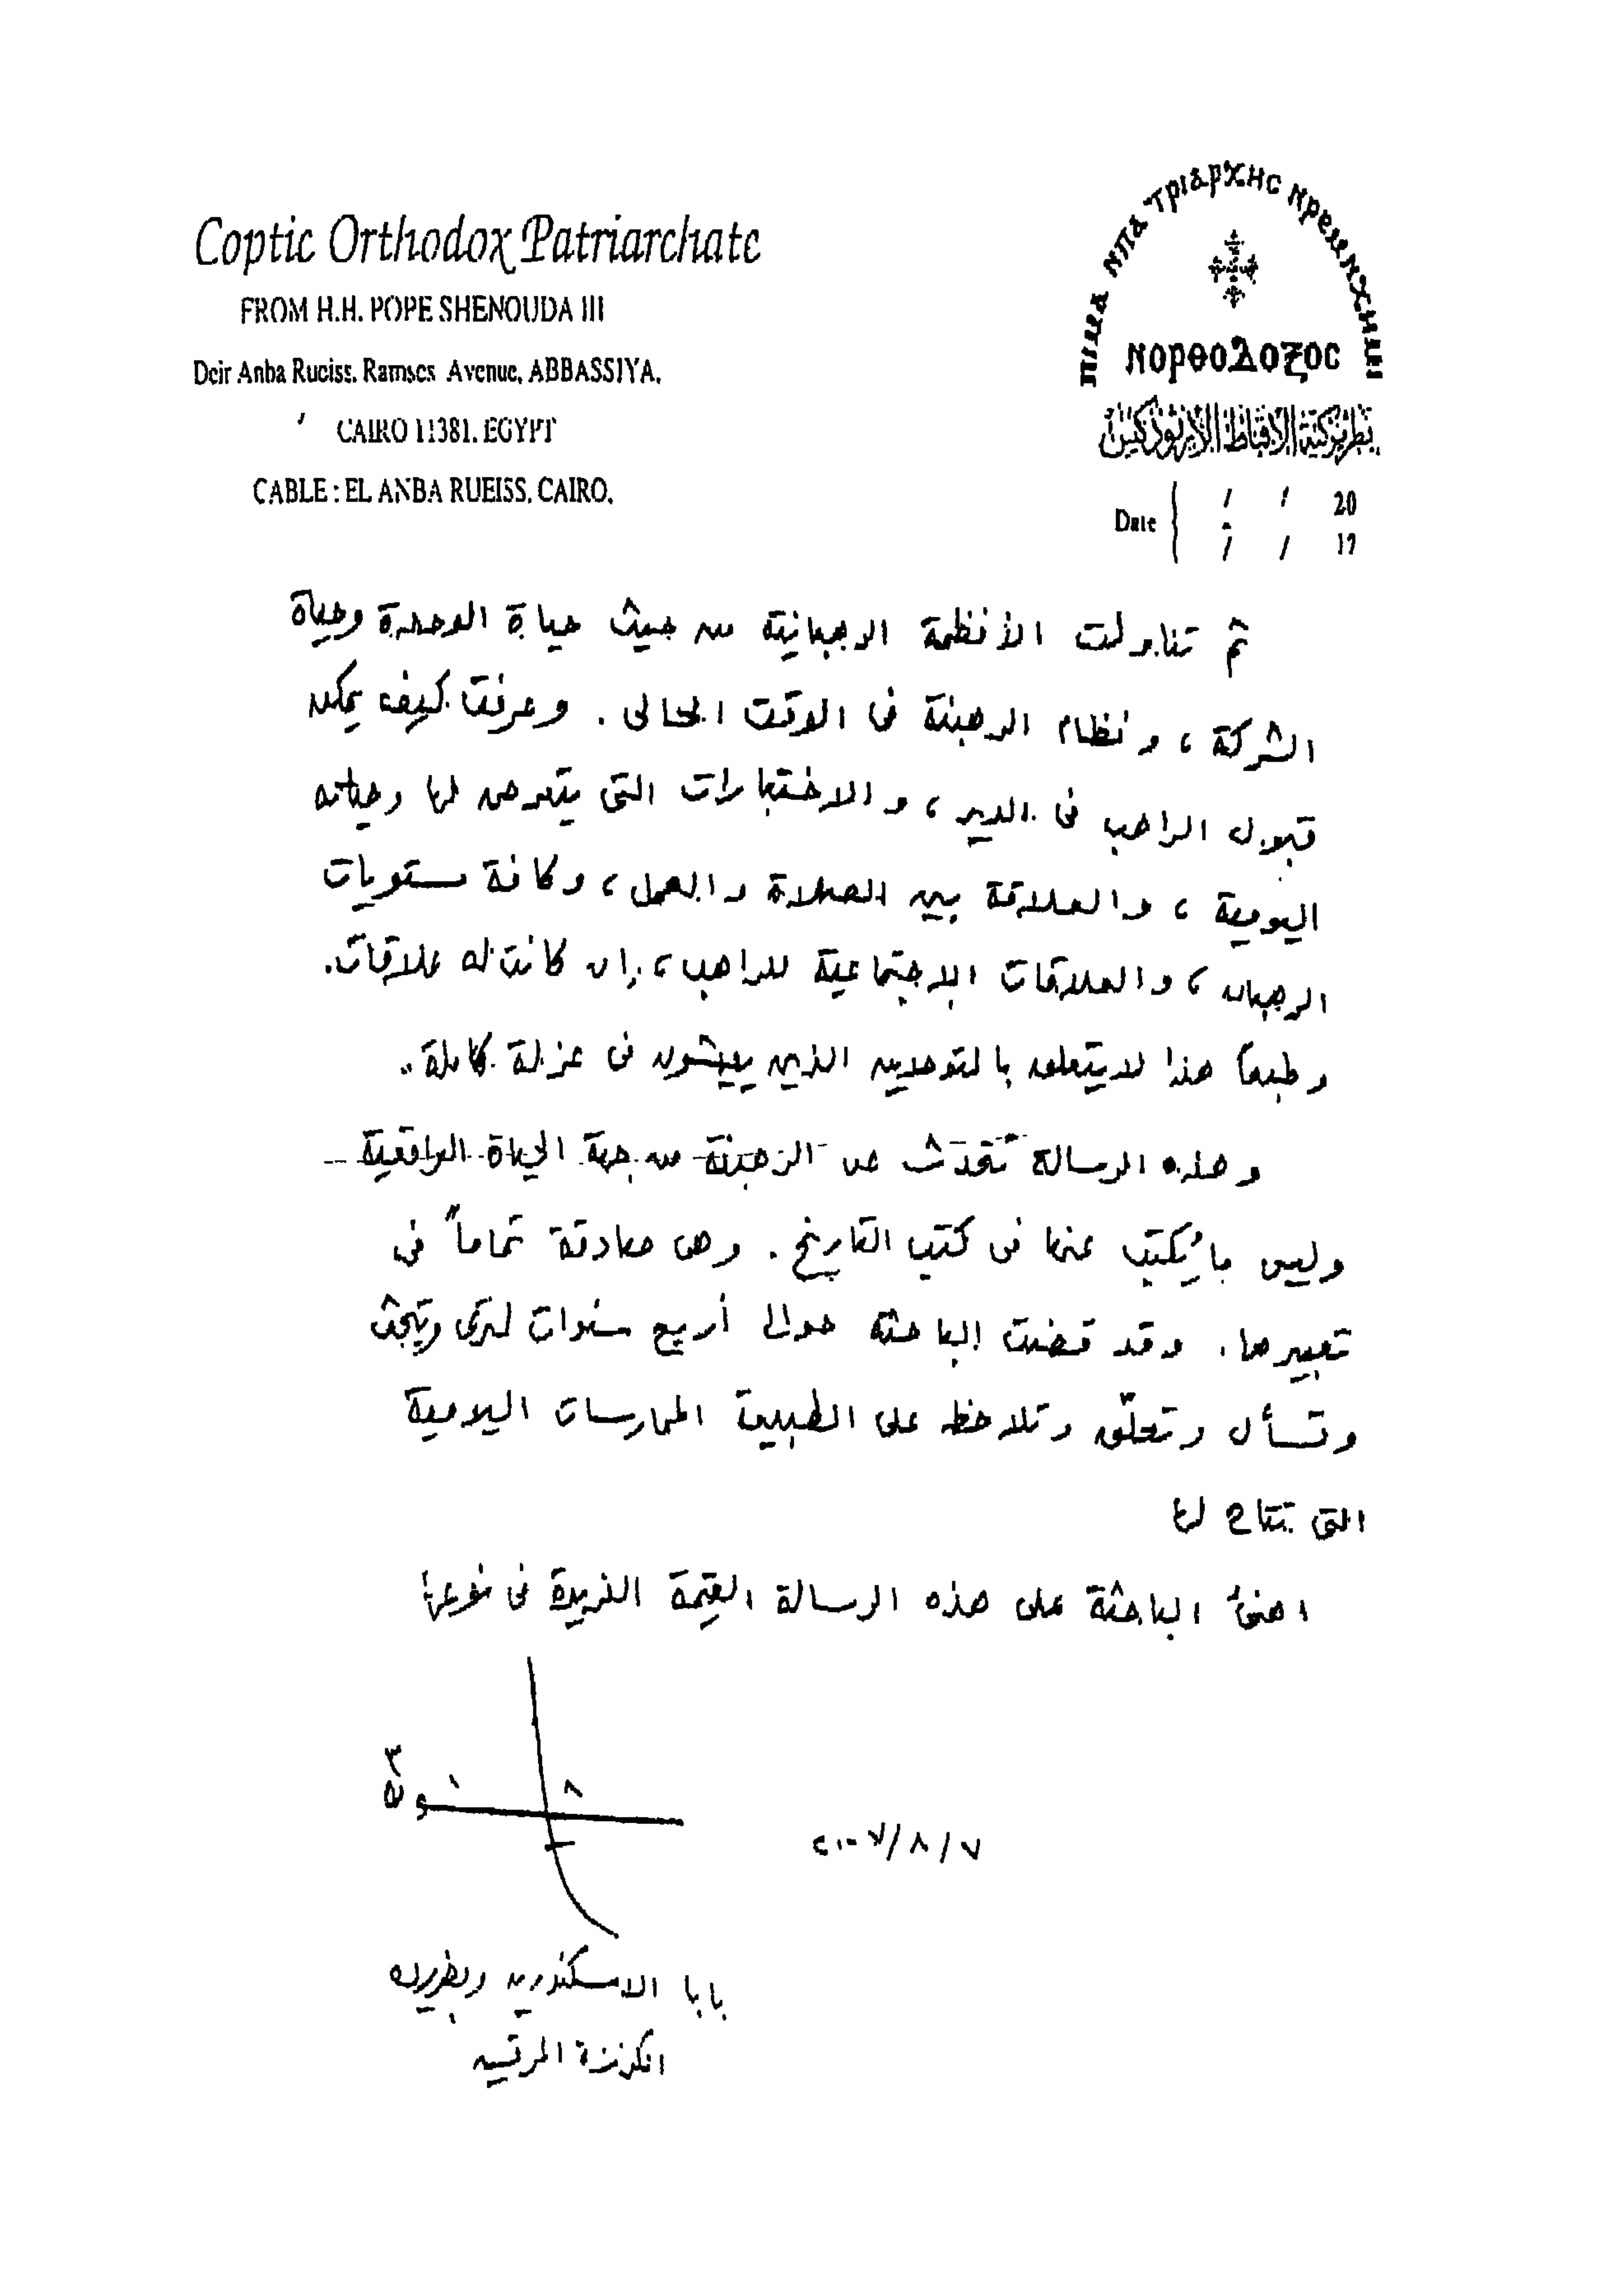 Coptic Orthodox Patriarchate
FROM H.H. POPE SHENOUDA III
Deir Anba Rueiss. Ramses Avenue, ABBASSIYA,
CAIRO 11381. EGYPT
CABLE : EL ANBA RUEISS. CAIRO.
ⲡⲓⲙⲁ ⲙⲡⲁⲧⲣⲓⲁⲣⲭⲏⲥ ⲛⲣⲉⲙⲛⲭⲏⲙⲓ
ⲛⲟⲣⲑⲟⲇⲟⲝⲟⲥ
بطريركية الأقباط الأرثوذكس
Date / / 20
/ / 19
ثم تناولت الأنظمة الرهبانية من حيث حياة الوحدة وحياة
الشركة ، ونظام الرهبنة فى الوقت الحالى . وعرفت كيف يمكن
قبول الراهب فى الدير ، والاختبارات التى يتعرض لها وحياته
اليومية ، والعلاقة بين الصلاة والعمل ، وكافة مستويات
الرهبان ، والعلاقات الاجتماعية للراهب ، إن كانت له علاقات .
وطبعاً هذا لا يتعلق بالمتوحدين الذين يعيشون فى عزلة كاملة ..
وهذه الرسالة تتحدث عن الرهبنة من جهة الحياة الواقعية
وليس ما يُكتب عنها فى كتب التاريخ . وهى صادقة تماماً فى
تعبيرها . وقد قضت الباحثة حوالى أربع سنوات لترى وتبحث
وتسأل وتعلّق وتلاحظ على الطبيعة الممارسات اليومية
التى تتاح لها
اهنئ الباحثة على هذه الرسالة القيمة الفريدة فى نوعها
شنوده ٣
٢٠٠٧/٨/٧
بابا الاسكندرية وبطريرك
الكرازة المرقسية